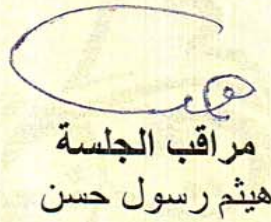 مراقب الجلسة
هيثم رسول حسن